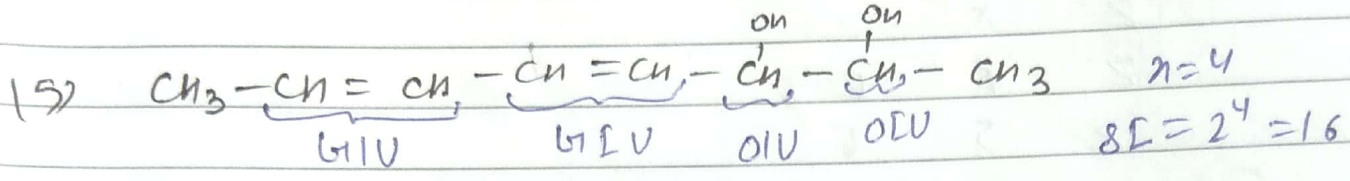 OH OH
15) CH3 – CH = CH – CH = CH – CH – CH – CH3 n=4
GIU GIU OIU OIU SI = 2^4 = 16